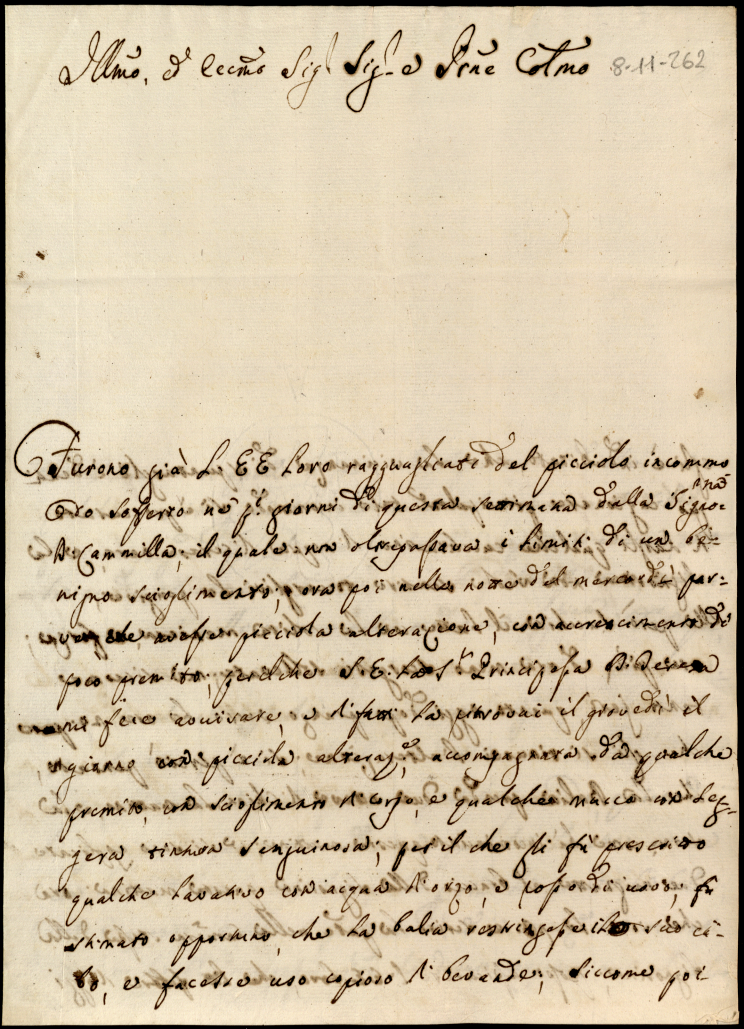 Illmo, ed Eccmo Sigr Sigr e Prne Colmo 8-11-262
Furono già L. EE Loro ragguagliati del picciolo incommo
do sofferto ne' pi giorni di questa settimana dalla Signorina
D. Cammilla, il quale non oltrepassava i limiti di un be-
nigno scioglimento; ora poi nella notte del mercordì par-
ve che avesse picciola alterazione, con accrescimento di
poco premito, perilche S. E. la Sra Principessa D. Teresa
mi fece avvisare, e di fatti la ritrovai il giovedì il
giorno con picciola alteraze, accompagnata da qualche
premito, con scioglimento di corpo, e qualche mucco con leg-
gera tintura sanguinosa; per il che gli fù prescritto
qualche lavativo con acqua d'orzo, e rosso di uovo; fù
stimato opportuno, che la balia restringesse il suo ci-
bo, e facesse uso copioso di bevande; siccome poi